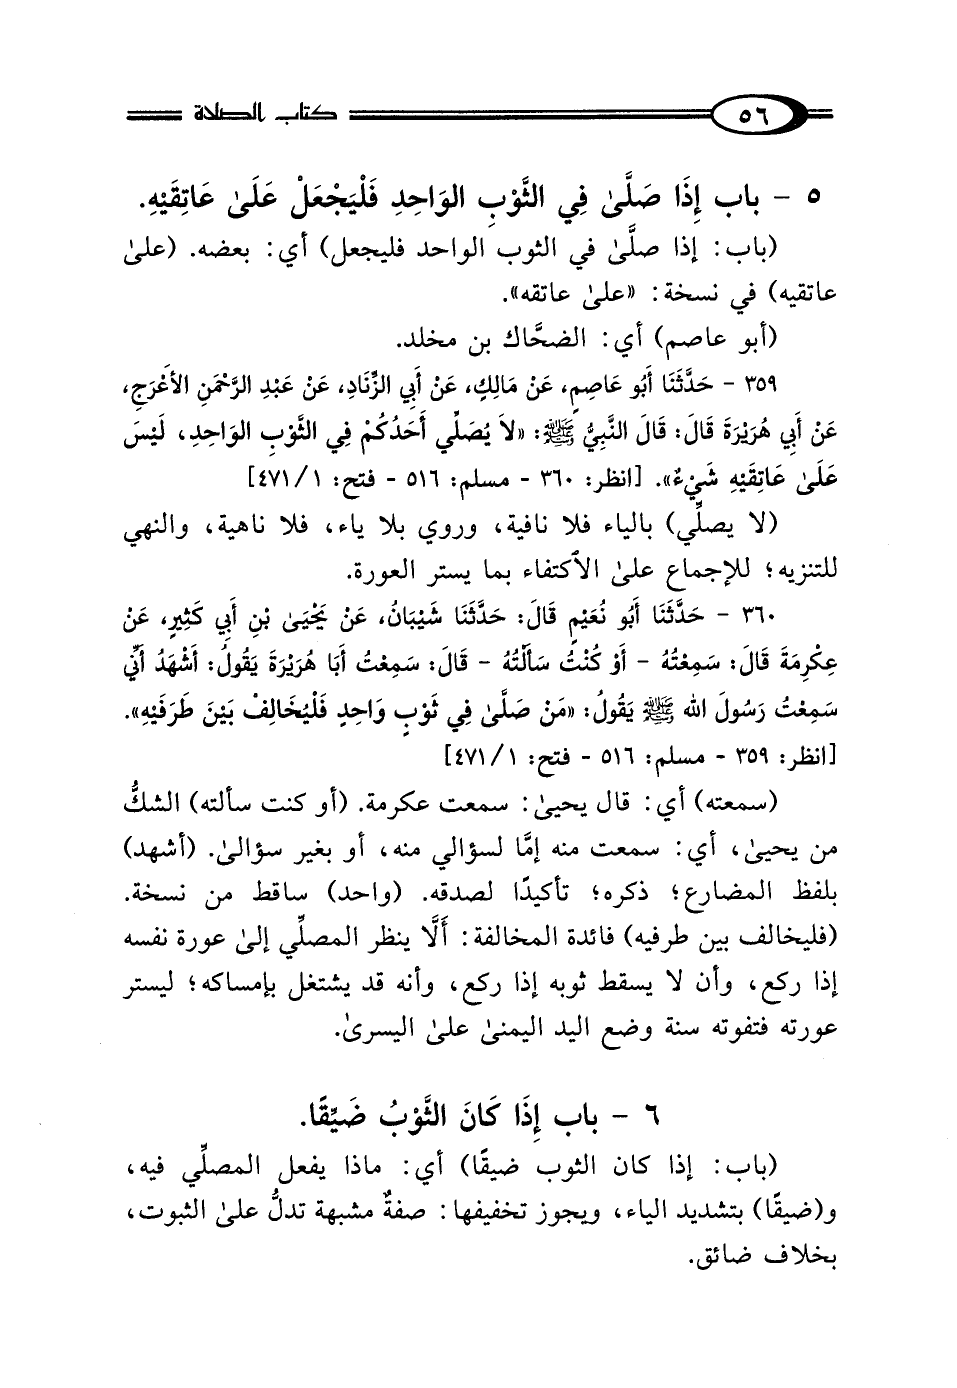 ٥٦ كتاب الصلاة
٥ - باب إِذَا صَلَّىٰ فِي الثَّوْبِ الوَاحِدِ فَلْيَجْعَلْ عَلَىٰ عَاتِقَيْهِ.
(باب: إذا صلَّىٰ في الثوب الواحد فليجعل) أي: بعضه. (علىٰ
عاتقيه) في نسخة: «علىٰ عاتقه».
(أبو عاصم) أي: الضحَّاك بن مخلد.
٣٥٩ - حَدَّثَنَا أَبُو عَاصِمٍ، عَنْ مَالِكٍ، عَنْ أَبِي الزِّنَادِ، عَنْ عَبْدِ الرَّحْمَنِ الأَعْرَجِ،
عَنْ أَبِي هُرَيْرَةَ قَالَ: قَالَ النَّبِيُّ ﷺ: «لاَ يُصَلِّي أَحَدُكُمْ فِي الثَّوْبِ الوَاحِدِ، لَيْسَ
عَلَىٰ عَاتِقَيْهِ شَيْءٌ». [انظر: ٣٦٠ - مسلم: ٥١٦ - فتح: ١/ ٤٧١]
(لا يصلِّي) بالياء فلا نافية، وروي بلا ياء، فلا ناهية، والنهي
للتنزيه؛ للإجماع علىٰ الاكتفاء بما يستر العورة.
٣٦٠ - حَدَّثَنَا أَبُو نُعَيْمٍ قَالَ: حَدَّثَنَا شَيْبَانُ، عَنْ يَحْيَىٰ بْنِ أَبِي كَثِيرٍ، عَنْ
عِكْرِمَةَ قَالَ: سَمِعْتُهُ - أَوْ كُنْتُ سَأَلْتُهُ - قَالَ: سَمِعْتُ أَبَا هُرَيْرَةَ يَقُولُ: أَشْهَدُ أَنِّي
سَمِعْتُ رَسُولَ الله ﷺ يَقُولُ: «مَنْ صَلَّىٰ فِي ثَوْبٍ وَاحِدٍ فَلْيُخَالِفْ بَيْنَ طَرَفَيْهِ».
[انظر: ٣٥٩ - مسلم: ٥١٦ - فتح: ١/ ٤٧١]
(سمعته) أي: قال يحيىٰ: سمعت عكرمة. (أو كنت سألته) الشكُّ
من يحيىٰ، أي: سمعت منه إمَّا لسؤالي منه، أو بغير سؤالىٰ. (أشهد)
بلفظ المضارع؛ ذكره؛ تأكيدًا لصدقه. (واحد) ساقط من نسخة.
(فليخالف بين طرفيه) فائدة المخالفة: أَلَّا ينظر المصلِّي إلىٰ عورة نفسه
إذا ركع، وأن لا يسقط ثوبه إذا ركع، وأنه قد يشتغل بإمساكه؛ ليستر
عورته فتفوته سنة وضع اليد اليمنىٰ علىٰ اليسرىٰ.
٦ - باب إِذَا كَانَ الثَّوْبُ ضَيِّقًا.
(باب: إذا كان الثوب ضيقًا) أي: ماذا يفعل المصلِّي فيه،
و(ضيقًا) بتشديد الياء، ويجوز تخفيفها: صفةٌ مشبهة تدلُّ علىٰ الثبوت،
بخلاف ضائق.